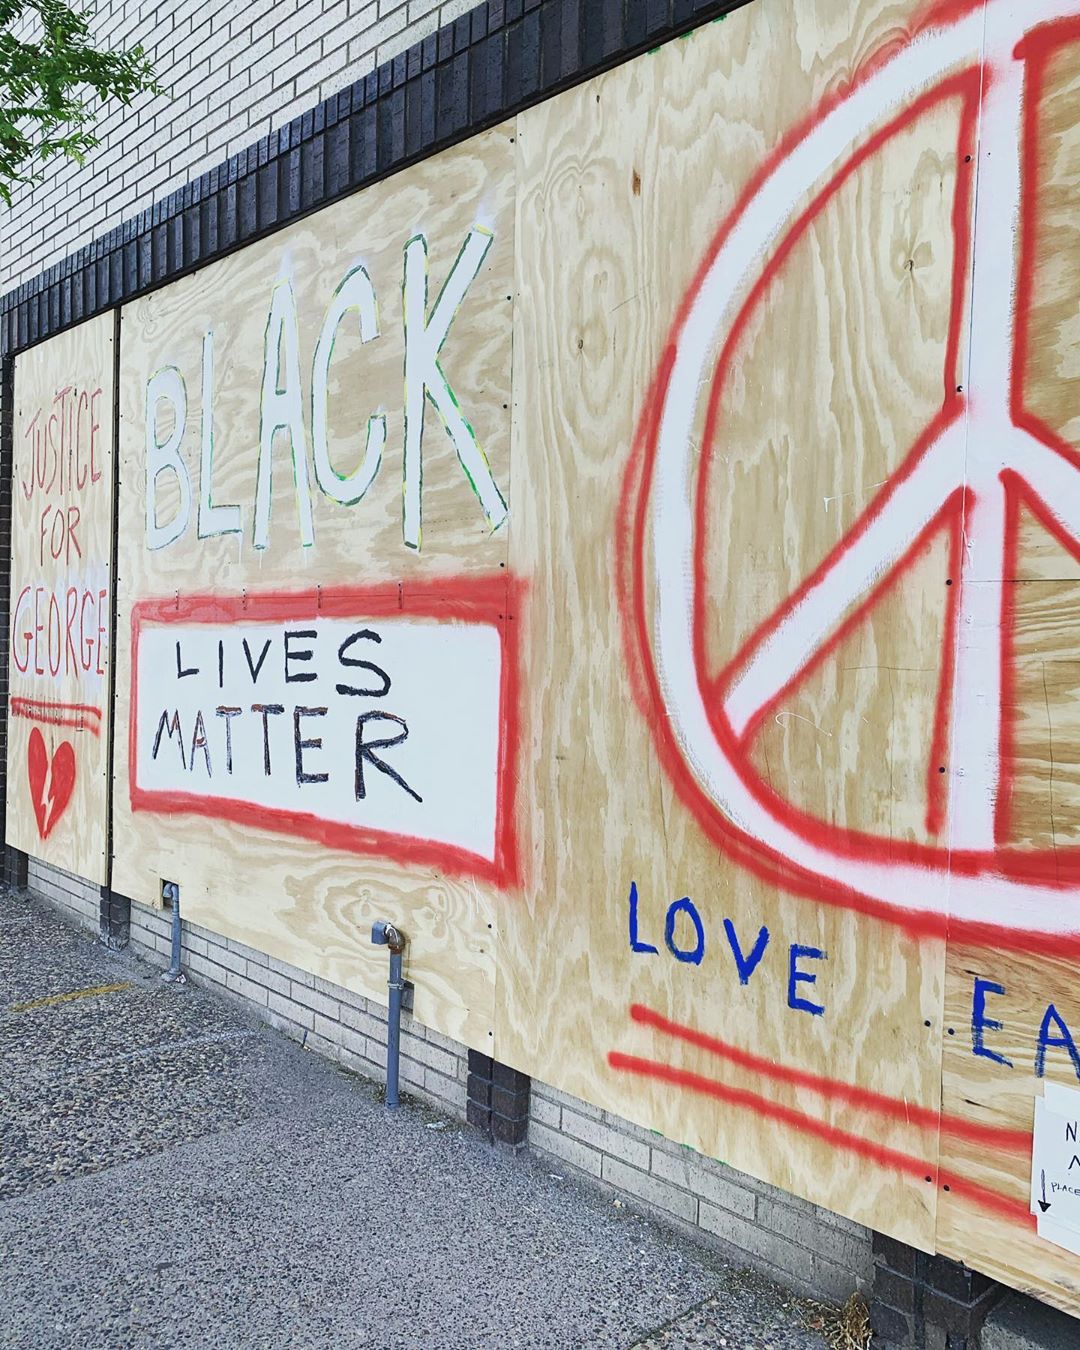 JUSTICE
FOR
GEORGE
BLACK
LIVES
MATTER
LOVE EA
N
PLACE